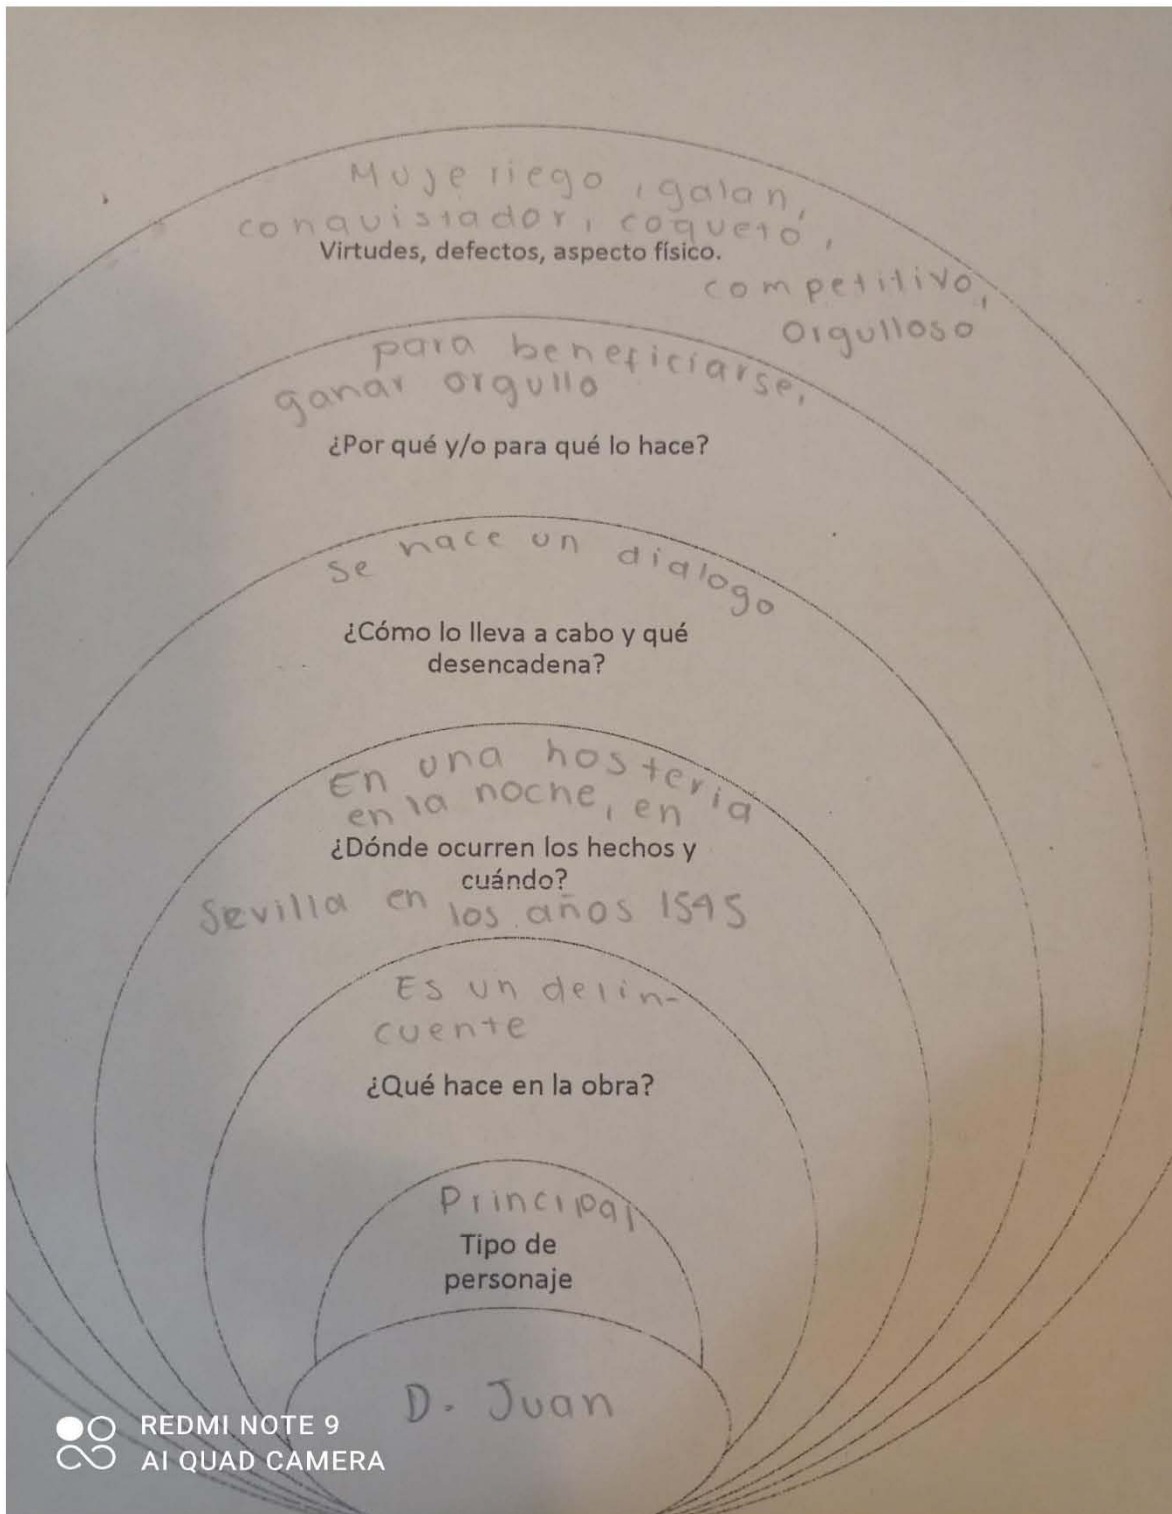 Mujeriego, galan,
conquistador, coqueto,
Virtudes, defectos, aspecto físico.
competitivo,
orgulloso
para beneficiarse,
ganar orgullo
¿Por qué y/o para qué lo hace?
Se hace un dialogo
¿Cómo lo lleva a cabo y qué
desencadena?
En una hosteria
en la noche, en
¿Dónde ocurren los hechos y
cuándo?
Sevilla en los años 1545
Es un delin-
cuente
¿Qué hace en la obra?
Principal
Tipo de
personaje
D. Juan
REDMI NOTE 9
AI QUAD CAMERA